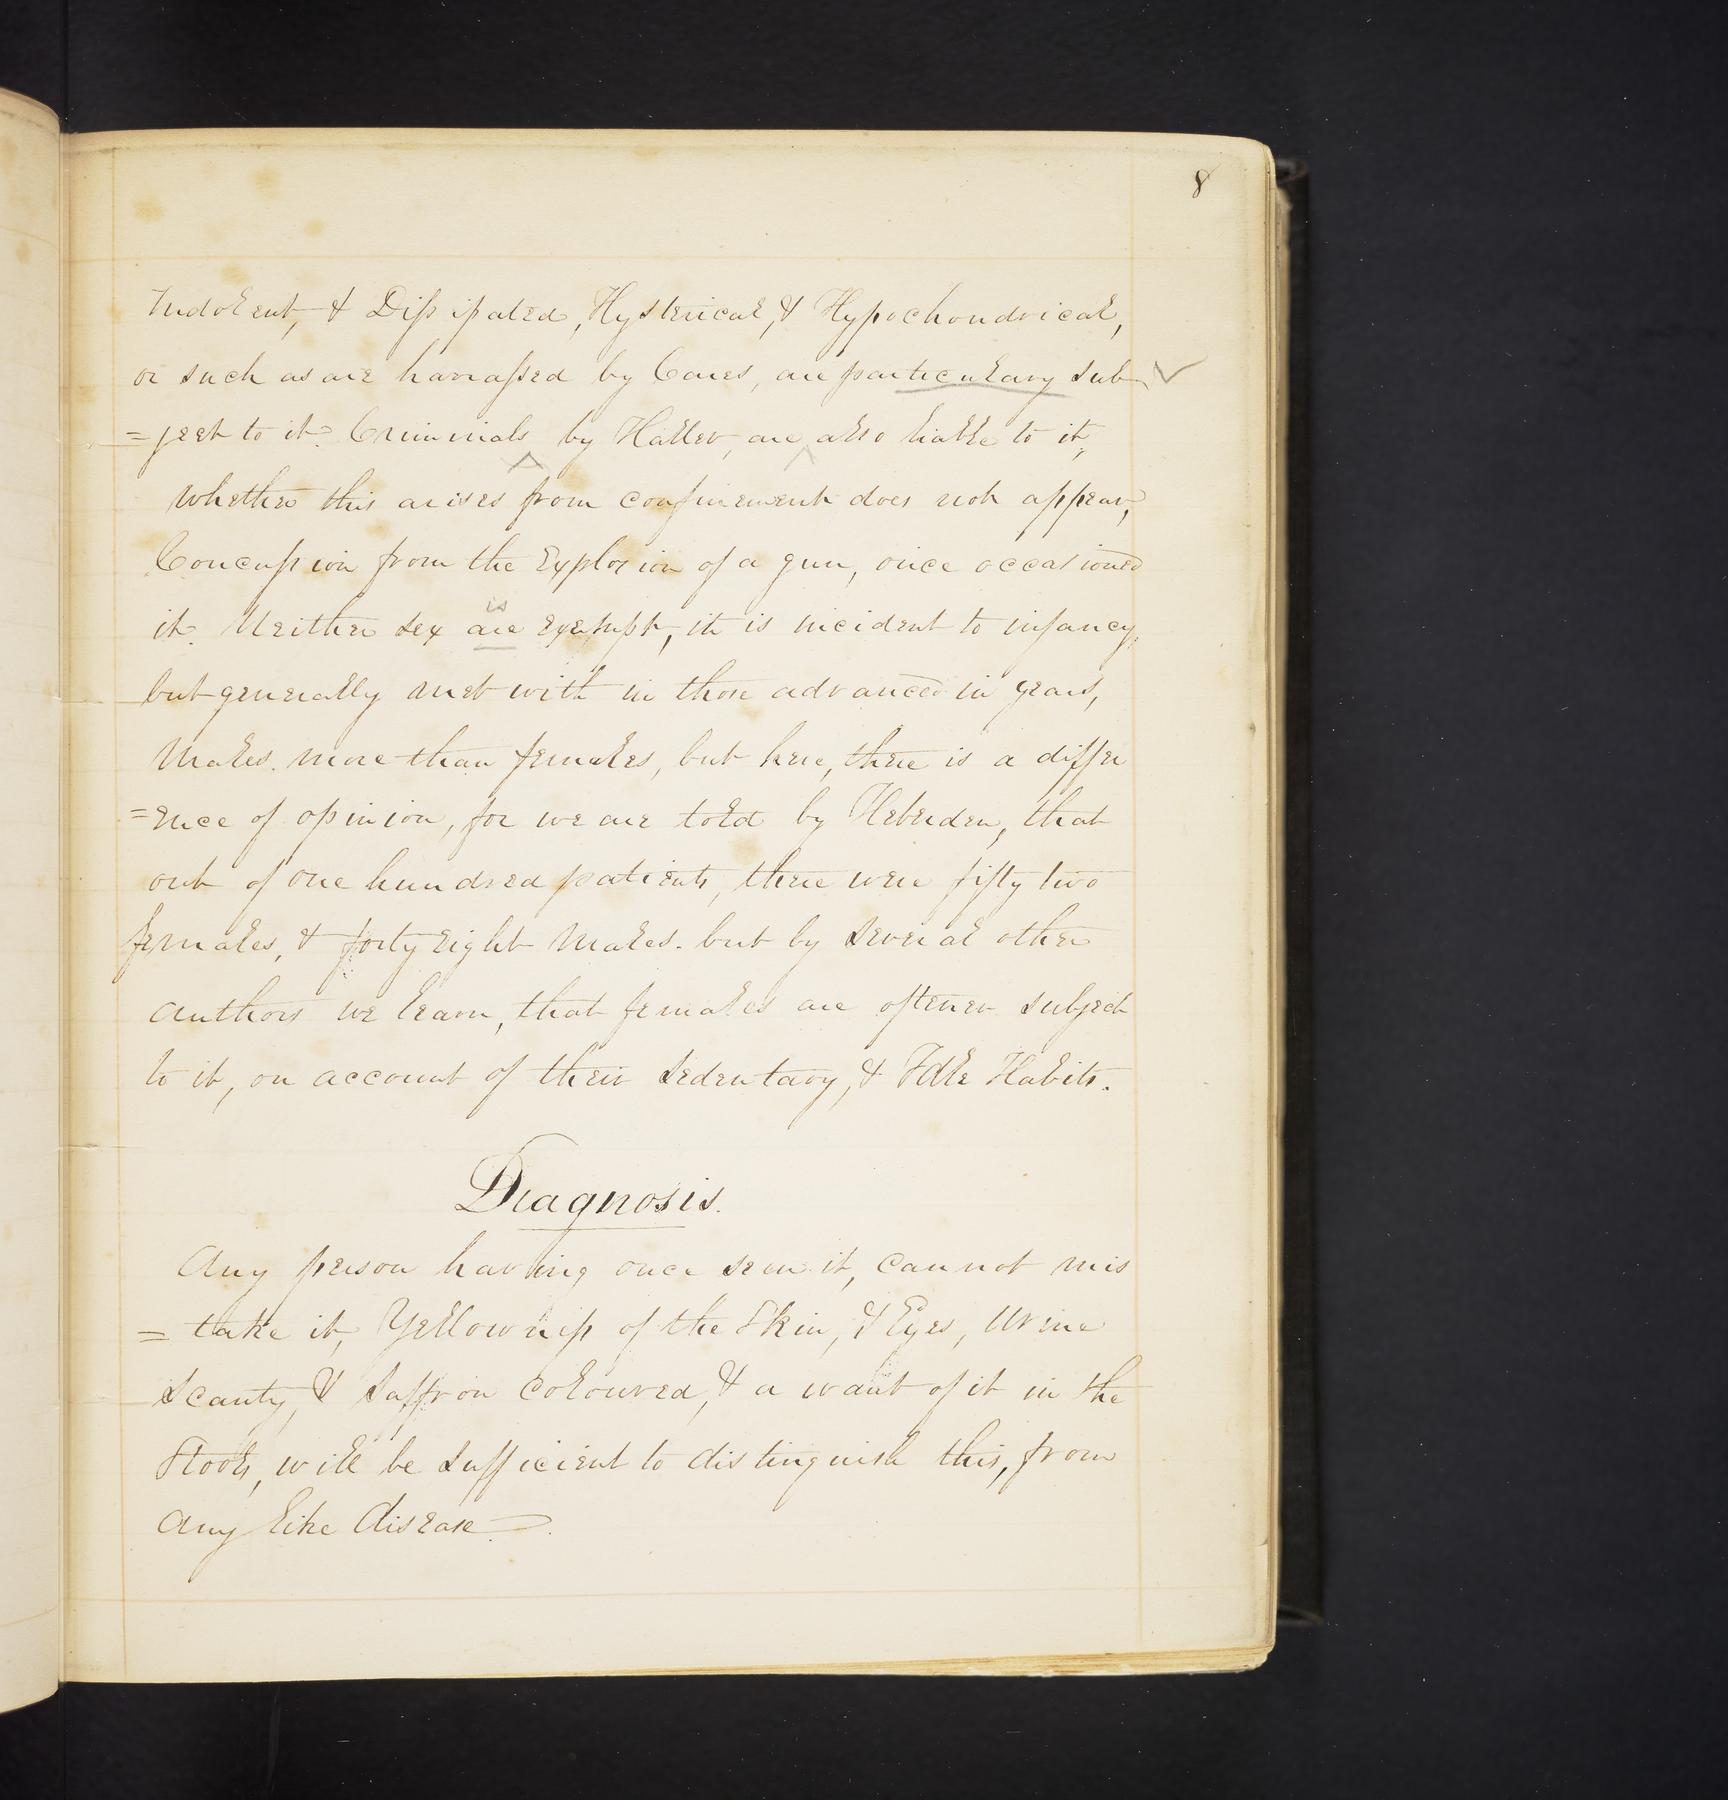 8
Indolent, & Dissipated, Hysterical, & Hypochondrical,
or such as are harrassed by Cares, are particulary sub
=ject to it. Criminals by Haller, are also liable to it,
whether this arises from confinement does not appear,
Concussion from the Explosion of a gun, once occasioned
is
it. Neither sex are exempt, it is incident to infancy,
but generally met with in those advanced in years,
Males. more than females, but here, there is a differ
=ence of opinion, for we are told by Heberden, that
out of one hundred patients, there were fifty two
females, & forty eight Males. but by several other
authors we learn, that females are oftener subject
to it, on account of their sedentary, & Idle Habits.
Diagnosis.
Any person having once seen it, cannot mis
=take it, Yellowness of the Skin, & Eyes, Urine
Scanty, & Saffron coloured, & a want of it in the
Stools, will be sufficient to distinguish this, from
any like disease.